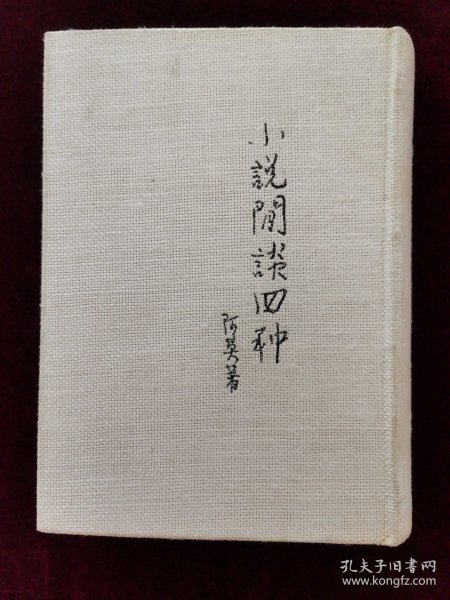 小說閒談四种
阿英著
孔夫子旧书网
www.kongfz.com